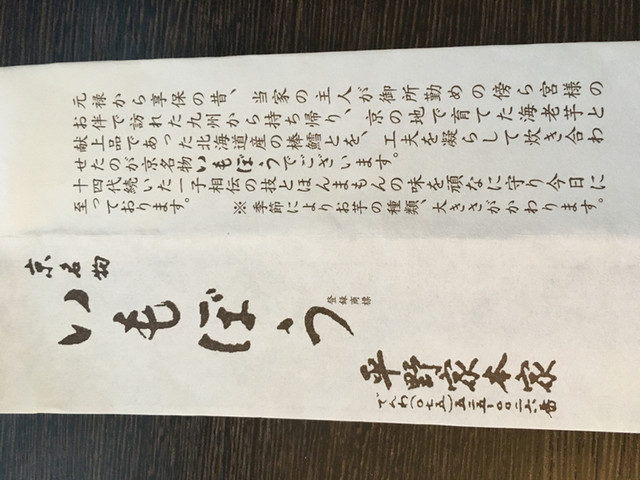 元禄から享保の昔、当家の主人が御所勤めの傍ら宮様の
お伴で訪れた九州から持ち帰り、京の地で育てた海老芋と
献上品であった北海道産の棒鱈とを、工夫を凝らして炊き合わ
せたのが京名物いもぼうでございます。
十四代続いた一子相伝の技とほんまもんの味を頑なに守り今日に
至っております。
※季節によりお芋の種類、大きさがかわります。
京名物
いもぼう
登録商標
平野家本家
でんわ(〇七五)五二五-〇〇二六番